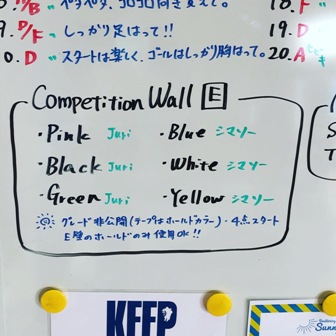 B" ペタペタ、コロコロ向き変えて。
9. D/F 〃 しっかり足はって!!
0. D 〃 スタートは楽しく、ゴールはしっかり胸はって。
18. F 〃
19. D 〃
20. A
Competition Wall E
・Pink Juri ・Blue シマゾー
・Black Juri ・White シマゾー
・Green Juri ・Yellow シマゾー
グレード非公開(テープはホールドカラー)・4点スタート
E壁のホールドのみ使用OK!!
S
T
KEEP